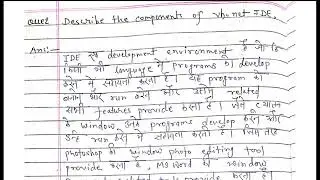 Que2. Describe the components of vb.net IDE.
Ans:- IDE एक development environment है जो कि
किसी भी language में programs को develop
करने में सहायता करता है। यह program को
बनाने और run करने और उससे related
सभी features provide करता है।
window programs develop करने और
उन्हें run करने में सहायता करता है। जिस तरह
photoshop window photo editing tool
provide करता है, MS Word window
provide करता है।